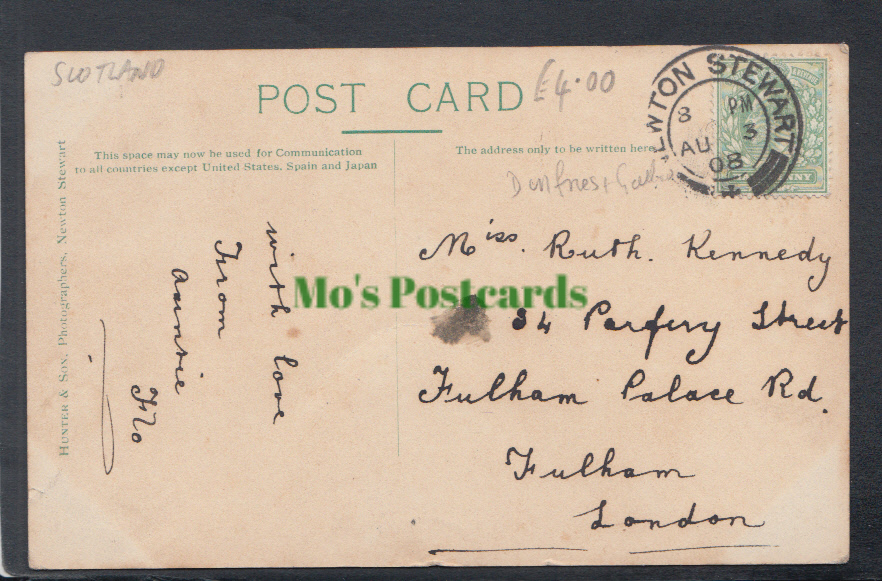 SCOTLAND
POST CARD
£4.00
NEWTON STEWART
8 PM
AU 3
08
NNY
This space may now be used for Communication
to all countries except United States, Spain and Japan
The address only to be written here
Dumfries + Gall
HUNTER & SON, Photographers, Newton Stewart
with love
From
Auntie
Flo
Miss. Ruth. Kennedy
Mo's Postcards
34 Parfery Street
Fulham Palace Rd.
Fulham
London